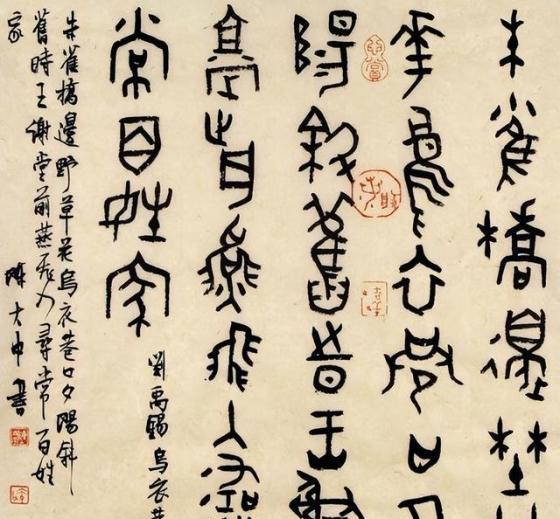 朱雀橋邊埜
華烏衣巷口夕
陽斜舊旹王謝
堂前燕飛入尋
常百姓家
劉禹錫烏衣巷
朱雀橋邊野草花烏衣巷口夕陽斜
舊時王謝堂前燕飛入尋常百姓
家
陳大中書